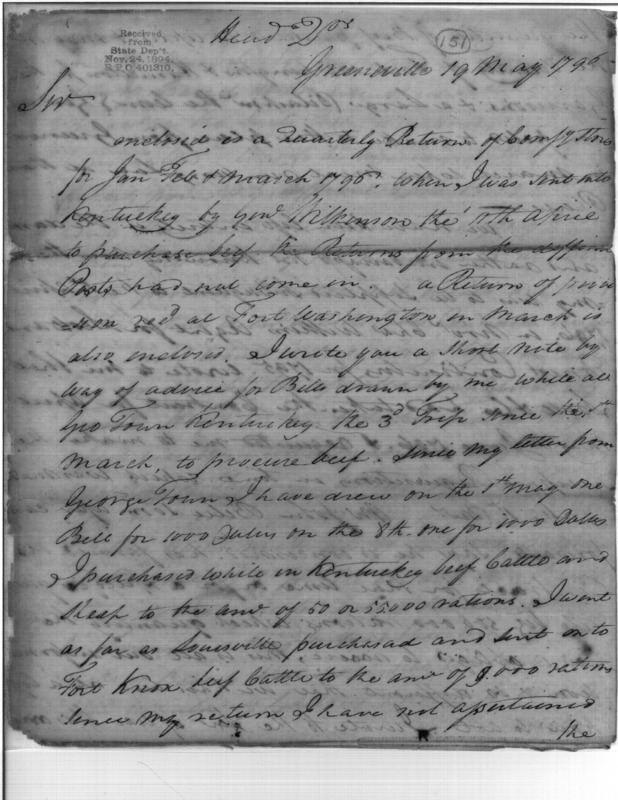 Received
from
State Dep't.
Nov. 24, 1894,
R.P.O 401310.
Head Qrs
151
Greeneville 19 May 179
Sir
enclosed is a Quarterly Return of
for Jan Feb & March 1796. when I was sent into
Kentuckey by Genl Wilkinson the 11th April
to purchase beef the Returns from the differin
Posts had not come in. a Return of provi
sion recd at Fort Washington in March is
also enclosed. I wrote you a short note by
way of advice for Bills drawn by me while at
Geo Town Kentuckey the 3d Trip since the 1st
March, to procure beef. Since my letter from
George Town I have drew on the 1th May one
Bill for 1000 Dollers on the 8th. one for 1000 Dollers
I purchased while in Kentuckey beef Cattle and
Sheep to the amt of 50 or 55000 rations. I went
as far as Louesville purchasad and sent on to
Fort Knox beef Cattle to the amt of 9.000 rations
Since my return I have not assertained
the